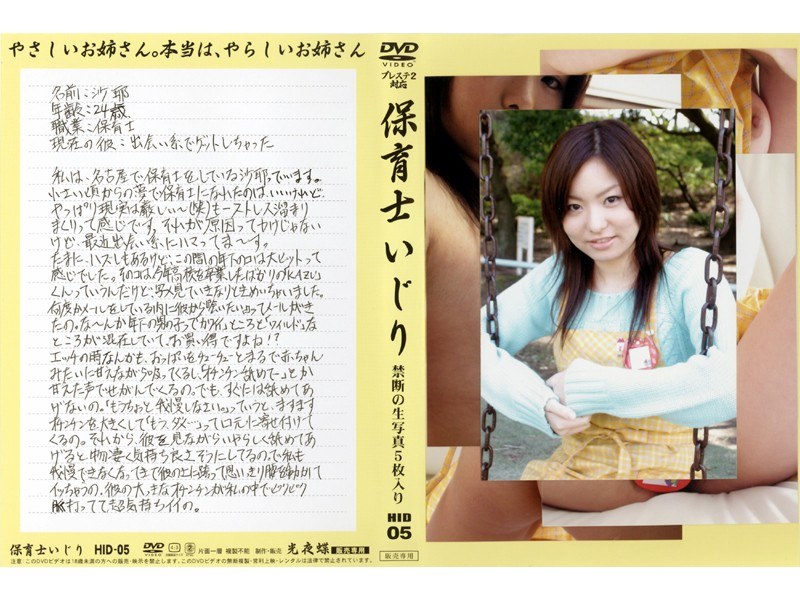 やさしいお姉さん。本当は、やらしいお姉さん
名前:沙耶
年齢:24歳
職業:保育士
現在の彼:出会い系でゲットしちゃった
私は、名古屋で保育士をしている沙耶っていいます。
小さい頃からの夢で保育士になれたのは、いいけれど、
やっぱり現実は厳しい〜(笑)もーストレス溜まり
まくりって感じです。それが原因ってわけじゃない
けど、最近出会い系にハマってま〜す。
たまに、ハズレもあるけど、この間の年下のコは大ヒットって
感じでした。そのコは今年高校を卒業したばかりの
くんっていうんだけど、写メ見ていきなりときめいちゃいました。
何度かメールをしている内に彼から会いたいってメールがきた
たの。な〜んか年下の男の子って「カワイイ」ところと「ワイルド」な
ところが混在していて、お買い得ですよね!?
エッチの時なんかも、おっぱいをチューチューとまるで赤ちゃん
みたいに甘えながら吸ってくるし「オチンチン舐めて〜」とか
甘えた声でせがんでくるの。でも、すぐには舐めてあ
げないの。「もうちょっと我慢しなさい。」っていうと、ますます
オチンチンを大きくして「もう、ダメ…」って口元に寄せ付けて
くるの。それから、彼を見ながらいやらしく舐めてあ
げると物凄く気持ち良さそうにしてるので、私も
我慢できなくなってきて彼の上に跨って思いっきり腰を動かして
イッちゃうの。彼の大きなオチンチンが私の中でビクビク
脈打ってて超気持ちイイの。
保育士いじり HID-05 DVD VIDEO 片面一層 複製不能 制作・販売 光夜蝶 販売専用
注意:このDVDビデオは18歳未満の方への販売・掲示を禁止します。このDVDビデオの無断複製・営利上映・レンタルは法律で禁止されています。
DVD
VIDEO
プレステ2
対応
保育士いじり
禁断の生写真5枚入り
HID
05
販売専用